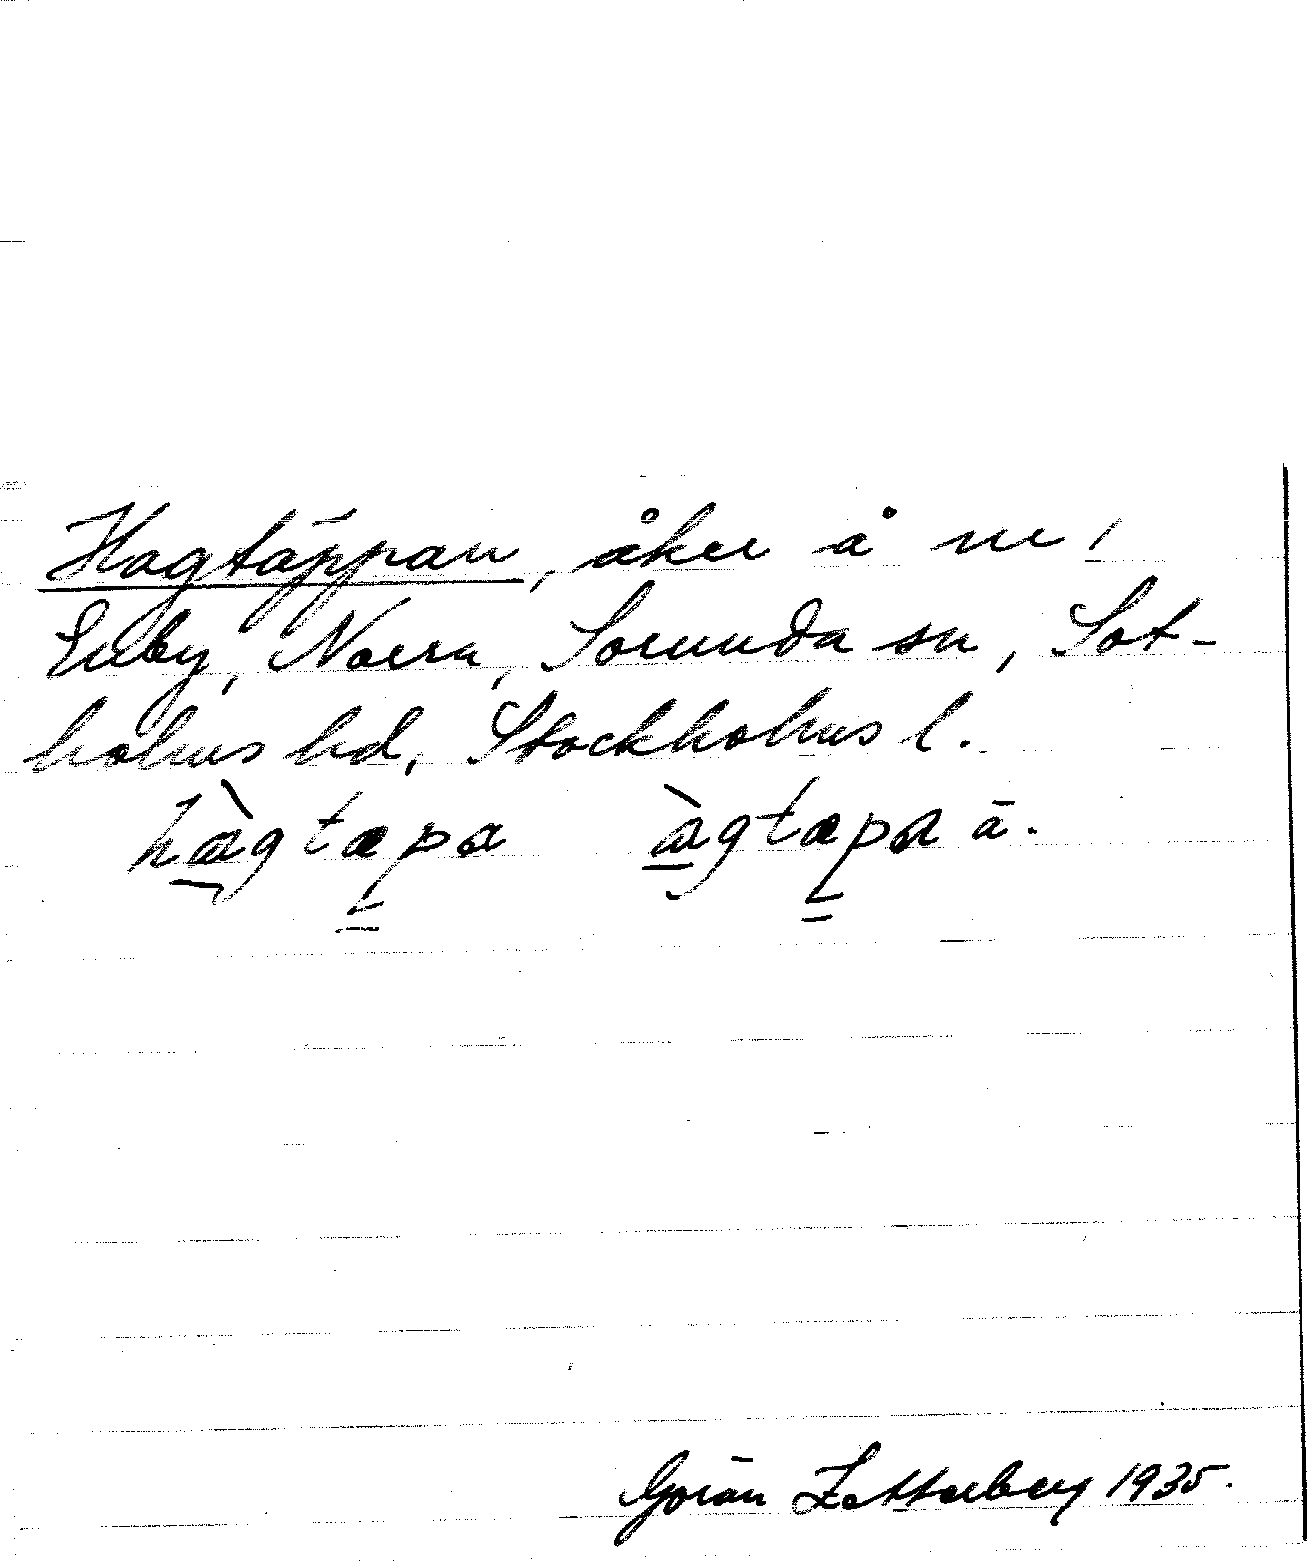 Hagtäppan, åker å nr 1
Enby, Norra, Sorunda sn, Sot-
holms hd, Stockholms l.
hàgtæpa àgtæpa ā.
Göran Zetterberg 1935.